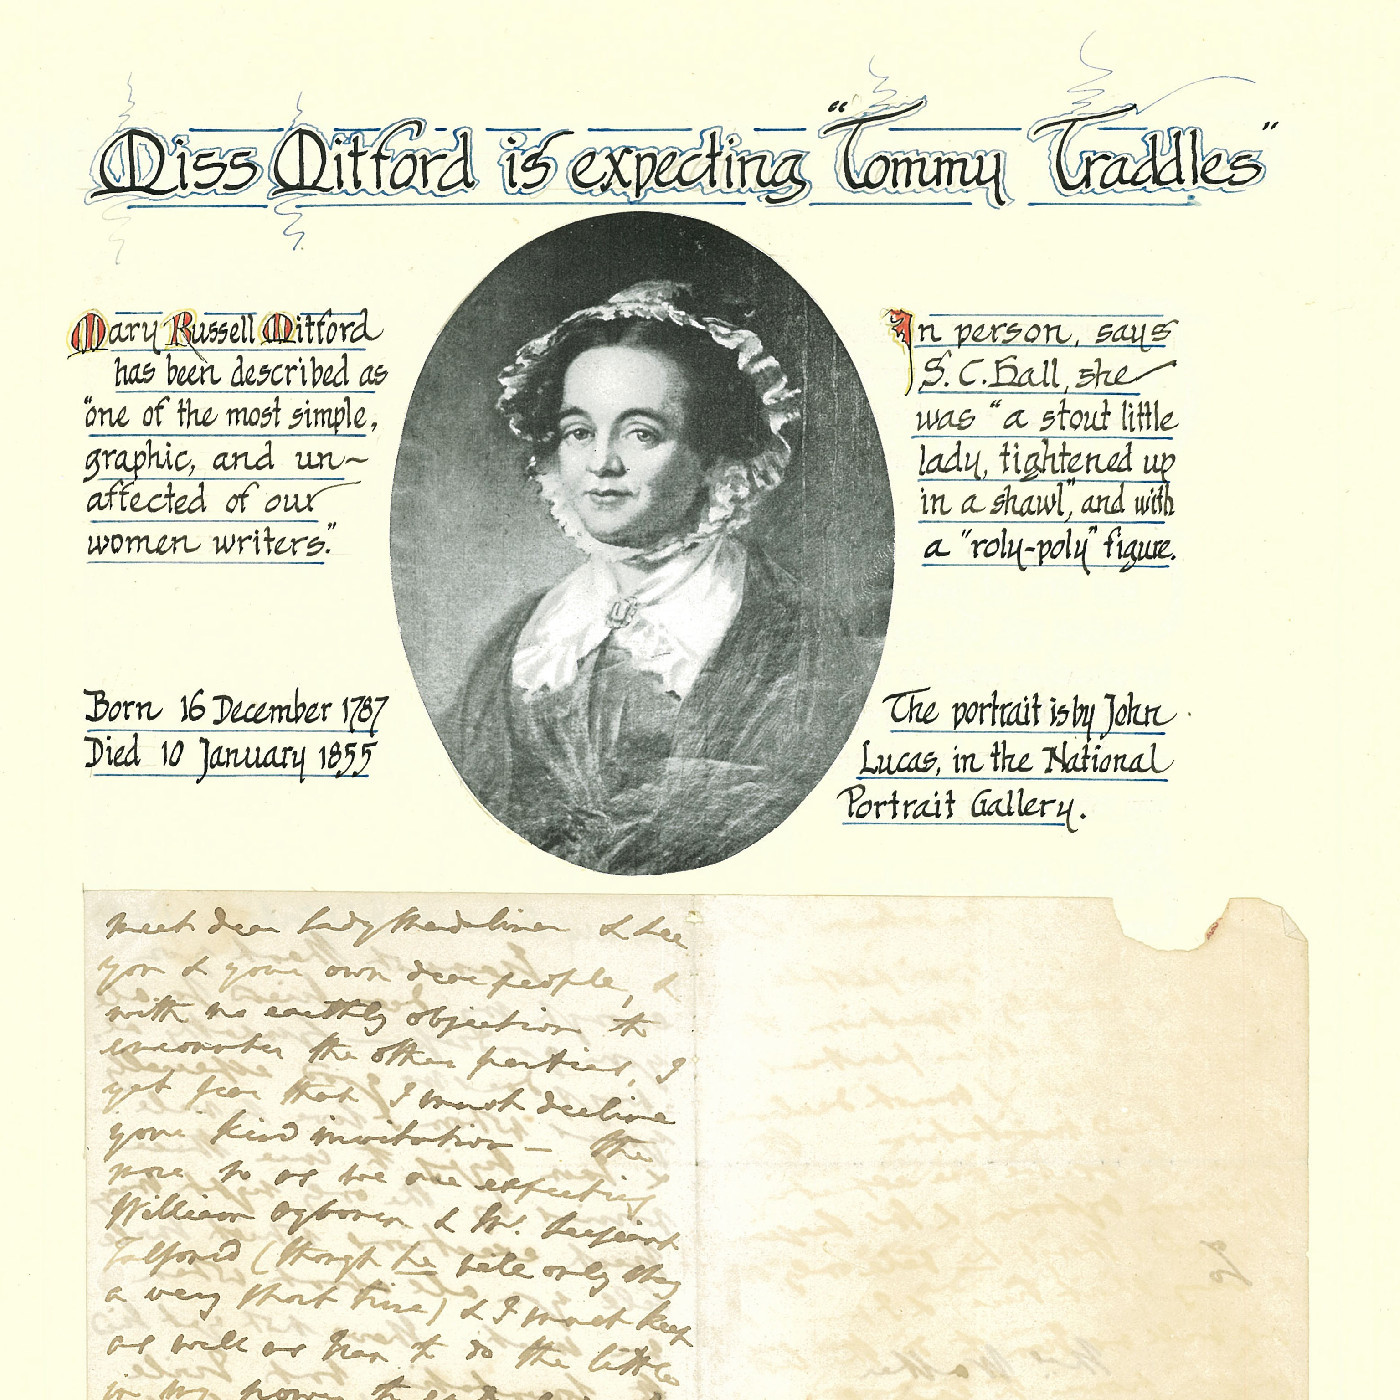 Miss Mitford is expecting "Tommy Traddles"
Mary Russell Mitford
has been described as
"one of the most simple,
graphic, and un~
affected of our
women writers."
Born 16 December 1787
Died 10 January 1855
In person, says
S. C. Hall, she
was "a stout little
lady, tightened up
in a shawl", and with
a "roly-poly" figure.
The portrait is by John
Lucas, in the National
Portrait Gallery.
meet dear Lady Madeline & see
you & your own dear people, &
with no earthly objection to
encounter the other parties, I
yet fear that I must decline
your kind invitation — the
more so as we are expecting
William Ogbourn & Mr. Serjeant
Talfourd (though he will only stay
a very short time) & I must keep
as well as I can to do the little
in my power to